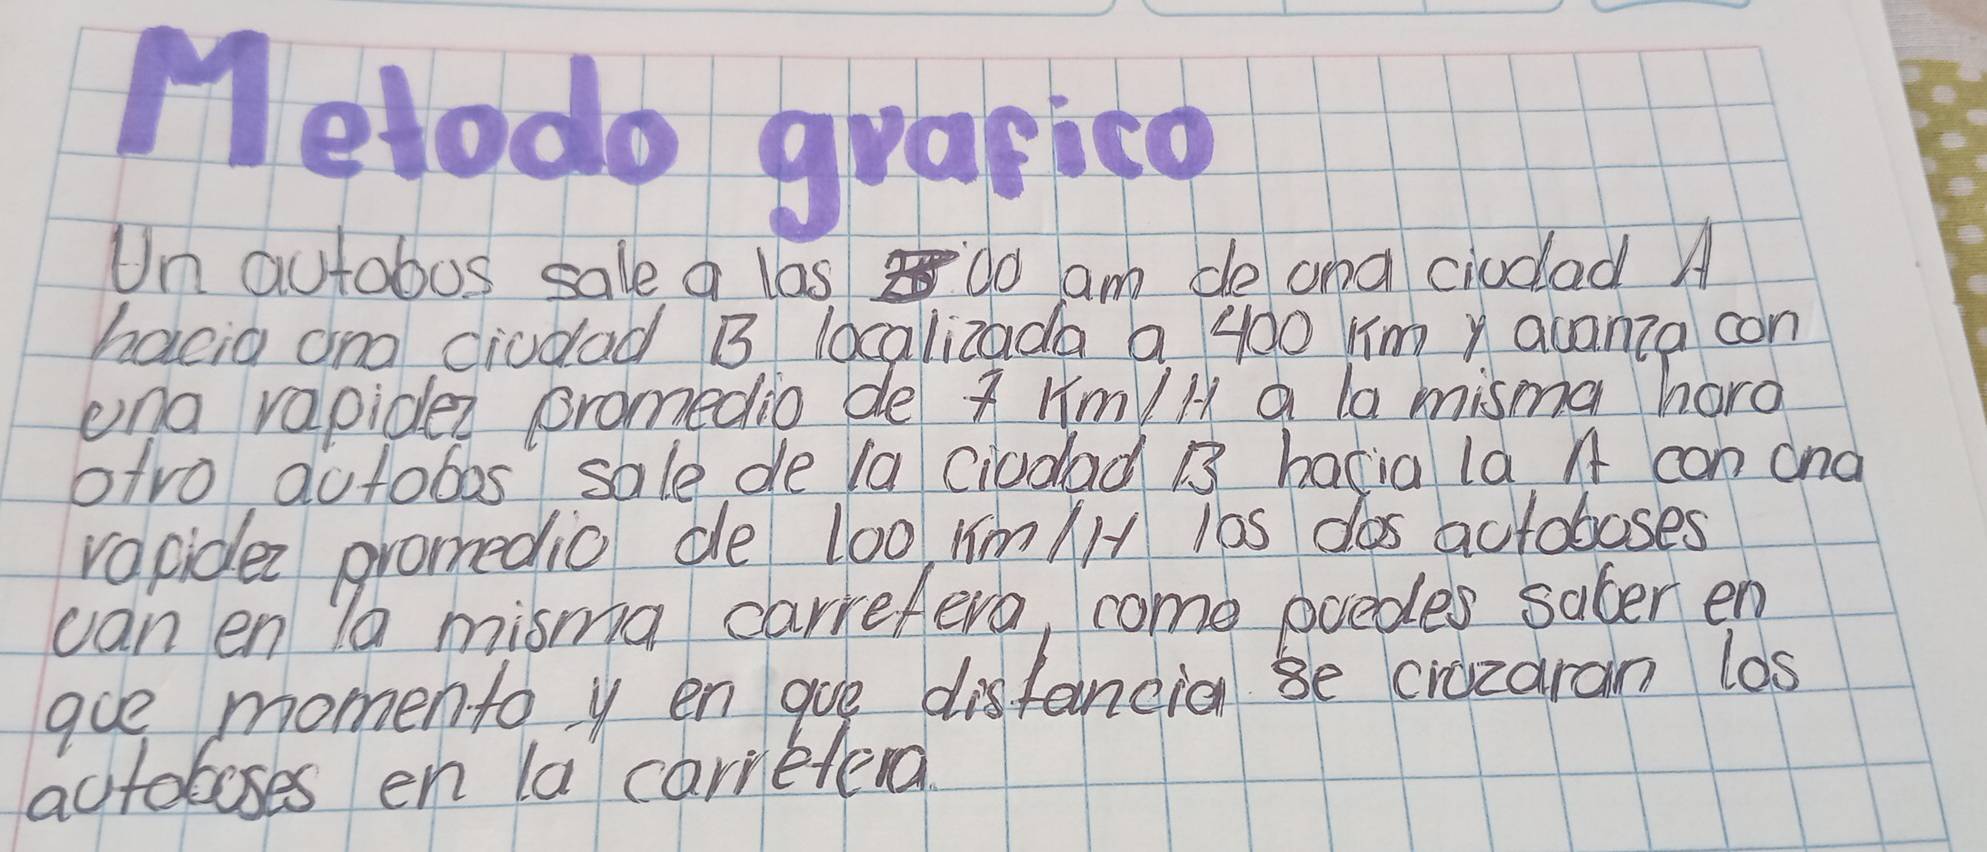 Metodo grafico
Un autobus sale a las :00 am de una ciudad A
hacia una ciudad B localizada a 400 Km y avanza con
una rapidez promedio de 7 Km/H a la misma hora
otro autobus sale de la ciudad B hacia la A con una
rapidez promedio de 100 Km/H los dos autobuses
van en la misma carretera, como puedes saber en
que momento y en que distancia se cruzaran los
autobuses en la carretera.